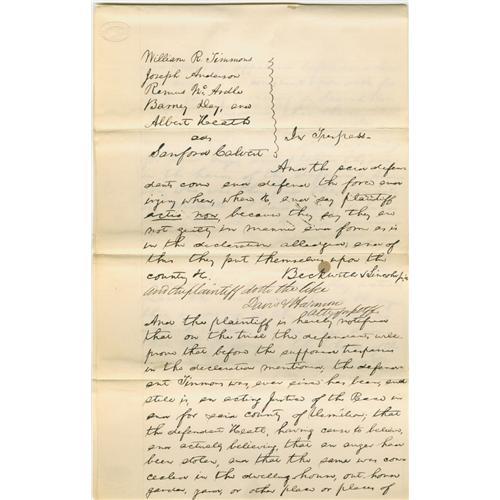 William R. Timmons
Joseph Anderson
Remus Mc Ardle
Barney Day, and
Albert Heath
ads
Sanford Calvert
In Trespass
And the said defen
dants come and defend the force and
injury when, where &c, and say plaintiff
actio non, because they say they are
not guilty in manner and form as is
in the declaration alledged, and of
this they put themselves upon the
county &c. Beckwith &
And the plaintiff doth the like
Davis & Harmon
And the plaintiff is hereby notified
that on the trial the defendants will
prove that before the supposed trespasses
in the declaration mentioned, the defend
ant Timmons was, ever since has been, and
still is, an acting Justice of the Peace in
and for said county of Hamilton, that
the defendant Heath, having cause to believe,
and actually believing, that an auger had
been stolen, and that the same was con
cealed in the dwelling house, out-house
garden, yard, or other place or places of